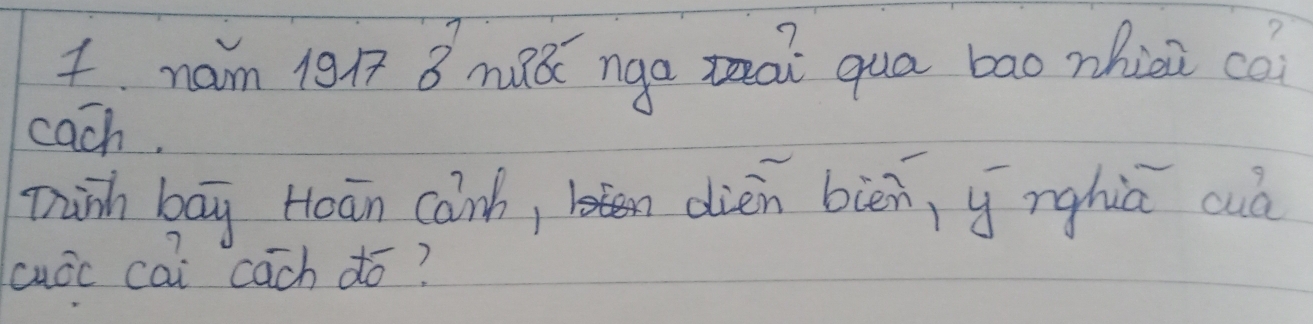 1. năm 1917 ở nước nga trải qua bao nhiêu cải
cách.
Trình bày Hoàn cảnh, diễn biến, ý nghĩa của
cuộc cải cách đó?